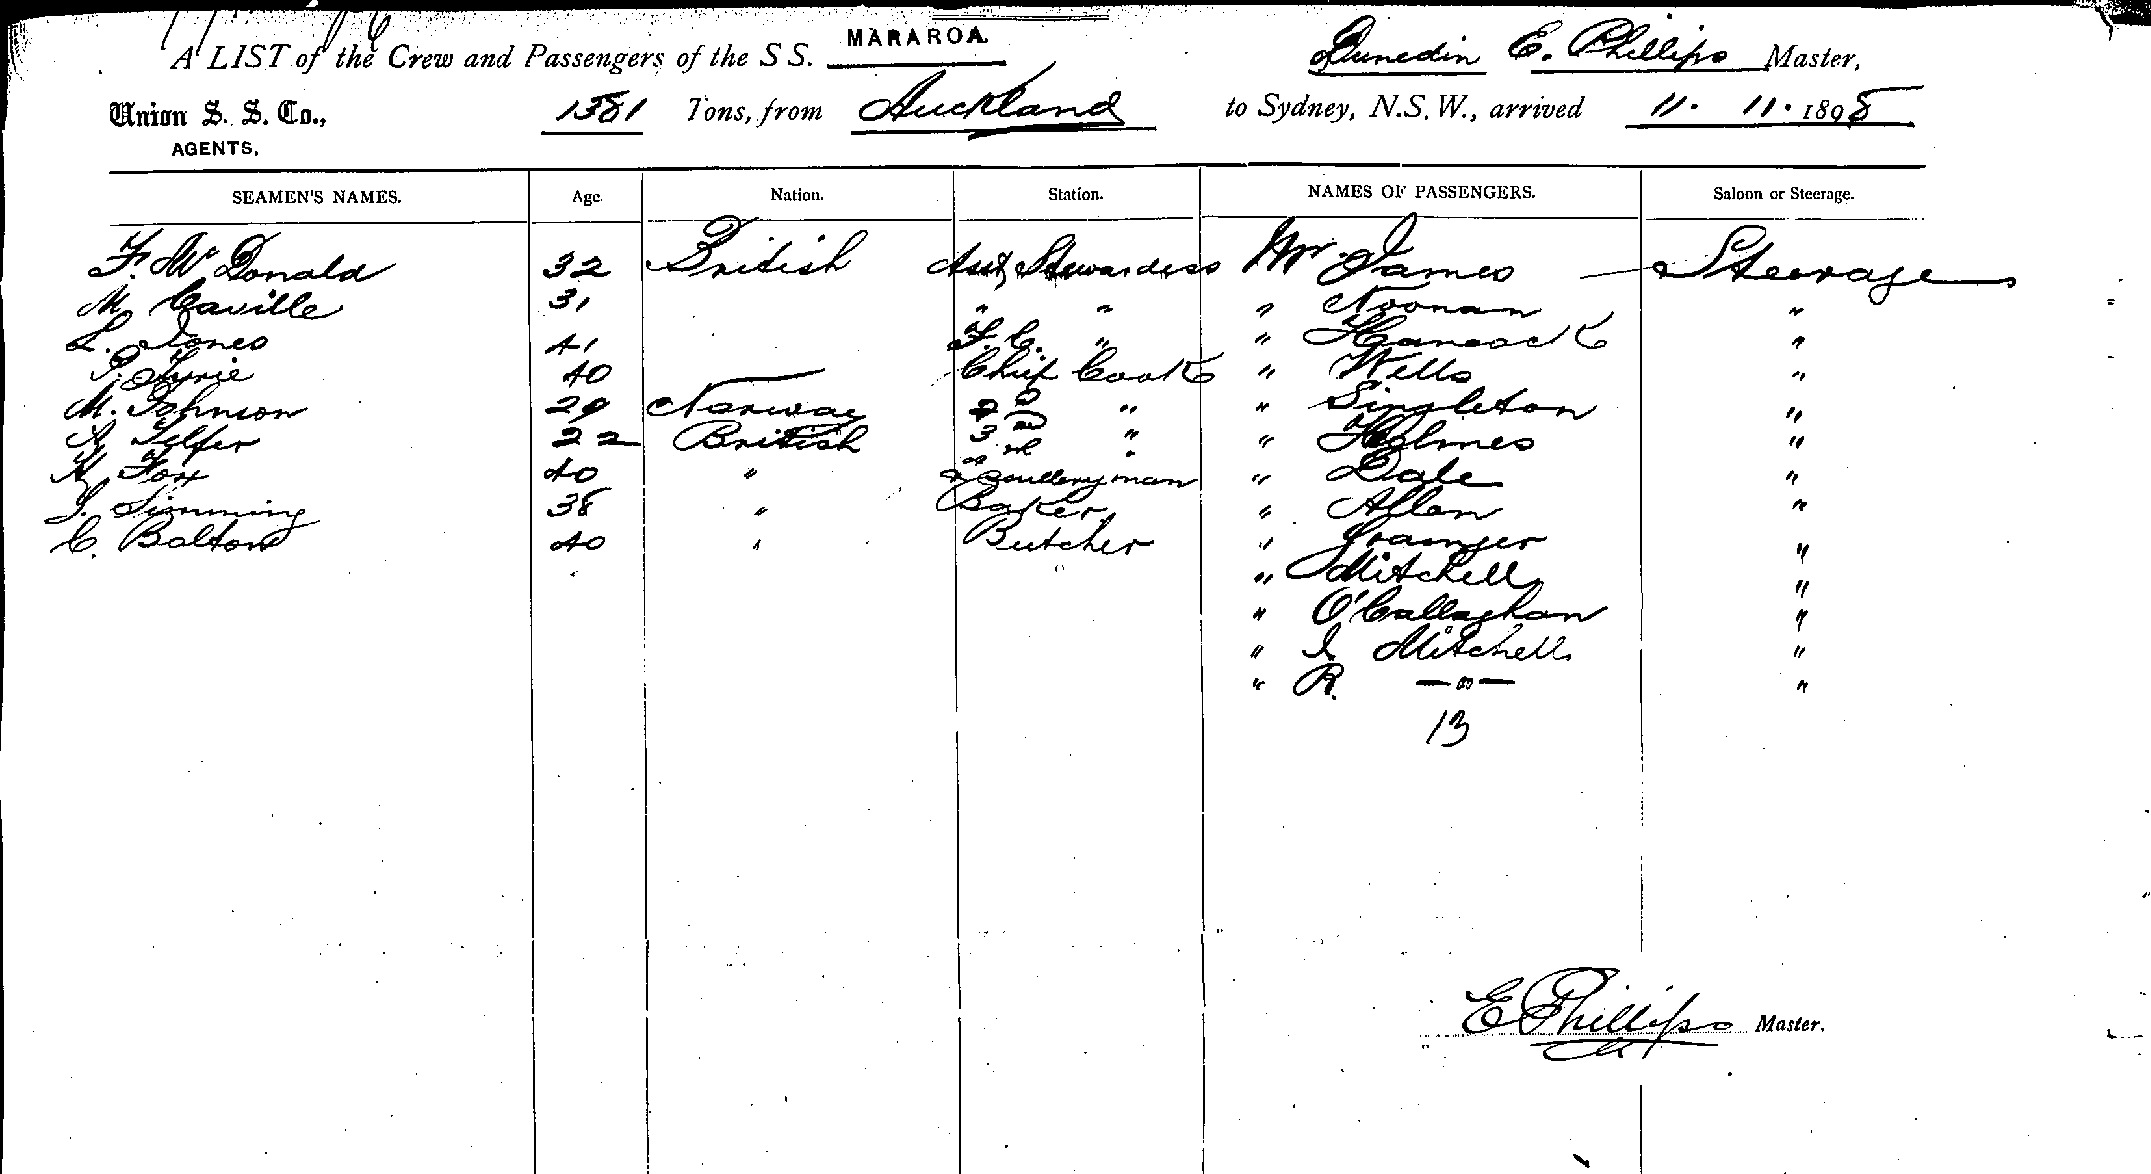 A LIST of the Crew and Passengers of the S S. MARAROA. Dunedin E. Phillips Master,
Union S. S. Co., 1381 Tons, from Auckland to Sydney, N.S.W., arrived 11. 11. 1898
AGENTS,
SEAMEN'S NAMES. Age Nation. Station. NAMES OF PASSENGERS. Saloon or Steerage.
F. McDonald 32 British Asst Stewardess Mr James Steerage
M. Caville 31 " " " Noonan "
L. Jones 41 F. C. " " Hancock "
40 Chief Cook " Wells "
M. Johnson 29 Norway 2nd " " Singleton "
A. Telfer 22 British 3rd " " Holmes "
Fox 40 " Sculleryman " Dale "
Simming 38 " Baker " Allan "
C. Bolton 40 " Butcher " Grainger "
" Mitchell "
" O'Callaghan "
" J. Mitchell "
" R. — " — "
13
E Phillips Master.